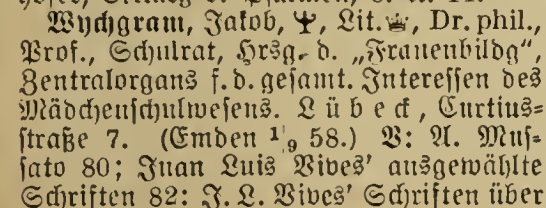 Wychgram, Jakob, Lit. Dr. phil.,
Prof., Schulrat, Hrsg. d. „Frauenbildg",
Zentralorgans f. d. gesamt. Interessen des
Mädchenschulwesens. Lübeck, Curtius=
straße 7. (Emden 1/9 58.) V: A. Mus=
sato 80; Juan Luis Vives' ausgewählte
Schriften 82: J. L. Vives' Schriften über